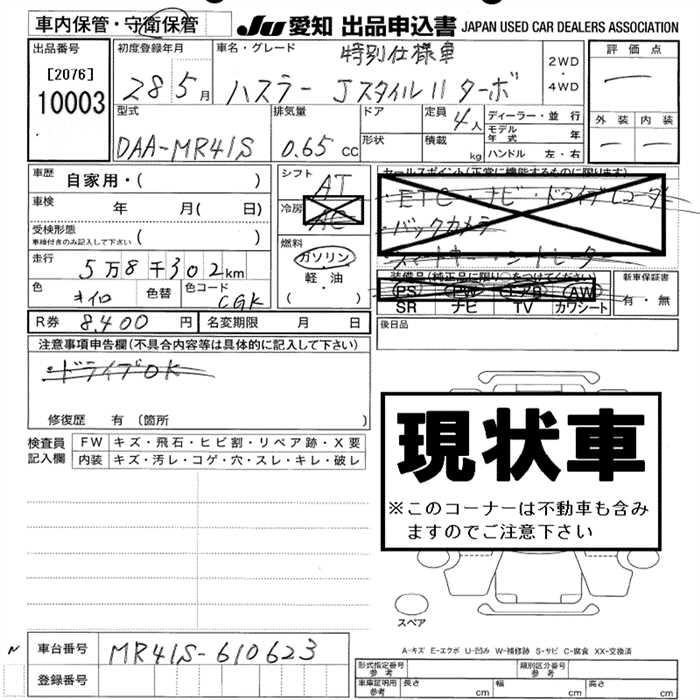 車内保管・守衛保管 JU 愛知 出品申込書 JAPAN USED CAR DEALERS ASSOCIATION
出品番号 初度登録年月 車名・グレード 特別仕様車 評価点
[2076] 28 5月 ハスラー JスタイルII ターボ 2WD・4WD
10003
型式 排気量 ドア 定員 4人 ディーラー・並行 外装 内装
DAA-MR41S 0.65 cc 形状 積載 kg モデル年式 年
ハンドル 左・右
車歴 自家用・( ) シフト AT セールスポイント(正常に機能するものに限ります)
車検 年 月( 日) 冷房 AC ・ETC・ナビ・ドライブレコーダー
受検形態 ( ) ・バックカメラ
車検付きのみ記入して下さい 燃料 ガソリン・軽・油
走行 5万8千302km 装備品(純正品に限り○をつけてください) 新車保証書
色 キイロ 色替 色コード CGK PS PW エアB AW 有・無
SR ナビ TV カワシート
R券 8,400円 名変期限 月 日 後日品
注意事項申告欄(不具合内容等は具体的に記入して下さい)
・ドライブOK
修復歴 有 (箇所 )
現状車
※このコーナーは不動車も含み
ますのでご注意下さい
検査員 FW キズ・飛石・ヒビ割・リペア跡・X要
記入欄 内装 キズ・汚レ・コゲ・穴・スレ・キレ・破レ
スペア
A-キズ E-エクボ U-凹み W-補修跡 S-サビ C-腐食 XX-交換済
N 車台番号 MR41S-610623
登録番号
形式指定番号 参考 類別区分番号 参考
車庫証明用 参考 長さ cm 幅 cm 高さ cm